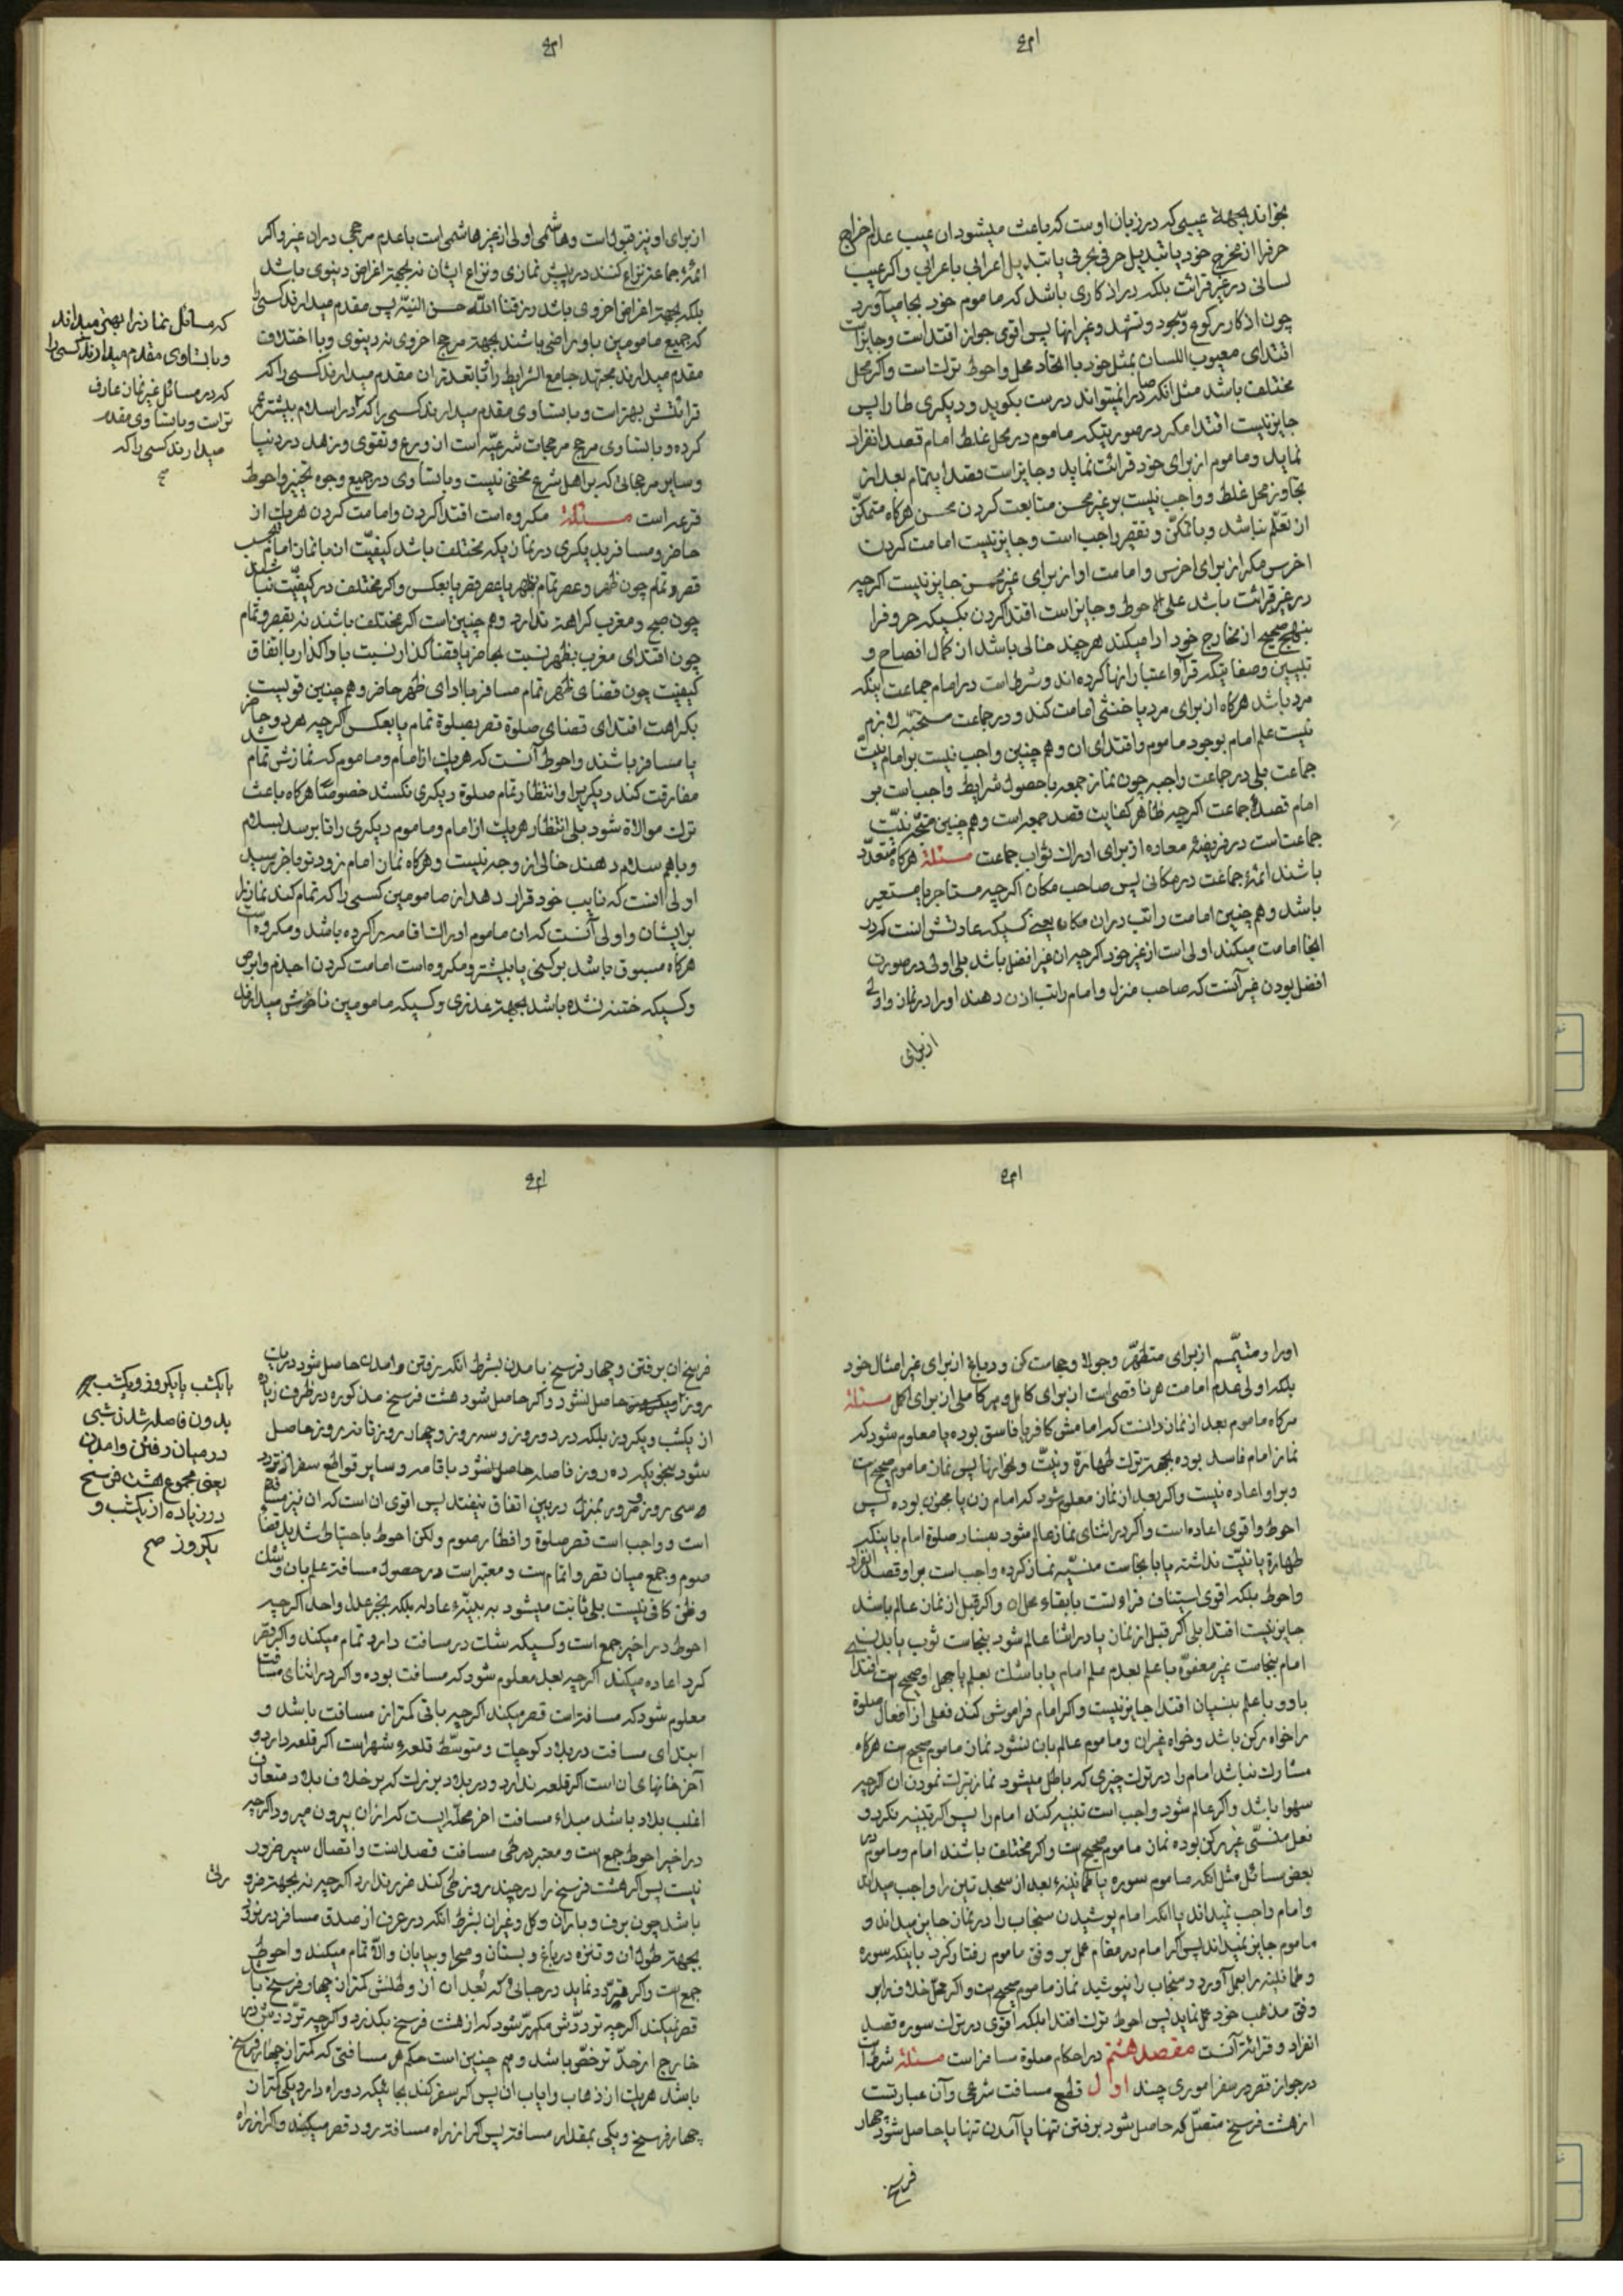 بخواند بجهة عیبی که در زبان اوست که باعث میشود ان عیب عدم اخراج
حرفرا از مخرج خود یا تبدیل حرفی بحرفی یا تبدیل اعرابی باعرابی و اکر عیب
لسانی در غیر قرائت بلکه در اذکاری باشد که ماموم خود بجا میآورد
چون اذکار رکوع و سجود و تشهد و غیر انها پس اقوی جواز اقتداست و جایز است
اقتدای معیوب اللسان بمثل خود با اتحاد محل و احوط ترکست و اکر محل
مختلف باشد مثل انکه صاد را نمیتواند درست بکوید و دیکری طا را پس
جایز نیست اقتدا مکر در صورتیکه ماموم در محل غلط امام قصد انفراد
نماید و ماموم از برای خود قرائت نماید و جایز است قصد ایتمام بعد از
تجاوز محل غلط و واجب نیست بر غیر محسن متابعت کردن محسن هرکاه متمکن
از تعلم نباشد و با تمکن و تقصیر واجب است و جایز نیست امامت کردن
اخرس مکر از برای اخرس و امامت او از برای غیر محسن جایز نیست اکرچه
در غیر قرائت باشد علی الاحوط و جایز است اقتدا کردن بکسیکه حروفرا
بنهج صحیح از مخارج خود ادا میکند هرچند خالی باشد از کمال افصاح و
تبیین و صفاتیکه قرآء اعتبار انها کرده اند و شرط است در امام جماعت اینکه
مرد باشد هرکاه از برای مرد یا خنثی امامت کند و در جماعت مستحبه لازم
نیست علم امام بوجود ماموم و اقتدای ان و هم چنین واجب نیست بر امام نیت
جماعت بلی در جماعت واجبه چون نماز جمعه با حصول شرایط واجب است بر
امام قصد جماعت اکرچه ظاهر کفایت قصد جمعه است و هم چنین متجه نیت
جماعت است در فریضهٔ معاده از برای ادراک ثواب جماعت مسئلة هرکاه متعدد
باشند ائمهٔ جماعت در مکانی پس صاحب مکان اکرچه مستاجر یا مستعیر
باشد و هم چنین امامت راتب در ان مکان یعنی کسیکه عادتش اینست که در
انجا امامت میکند اولی است از غیر خود اکرچه ان غیر افضل باشد بلی اولی در صورت
افضل بودن غیر آنست که صاحب منزل و امام راتب اذن دهند او را در نماز و اولی
از برای
از برای او نیز قبول است و هاشمی اولی از غیر هاشمی است با عدم مرجحی در ان غیر و اکر
ائمهٔ جماعة نزاع کنند در پیش نمازی و نزاع ایشان نه بجهة اغراض دنیوی باشد
بلکه بجهة اغراض اخروی باشد پس مقدم میدارند کسی را
که جمیع مامومین باو راضی باشند بجهة مرجح اخروی نه دنیوی و با اختلاف
مقدم میدارند مجتهد جامع الشرایط را مقدم میدارند کسی را که
قرائتش بهتر است و با تساوی مقدم میدارند کسی را که در اسلام بیشتر عمر
کرده و با تساوی مرجح مرجحات شرعیه است از ورع و تقوی و زهد در دنیا
و سایر مرجحاتی که بر اهل شرع مخفی نیست و با تساوی در جمیع وجوه تخییر و احوط
قرعه است مسئلة مکروه است اقتدا کردن و امامت کردن هریک از
حاضر و مسافر بدیکری در نمازیکه مختلف باشد کیفیت ان با نماز امام بحسب
قصر و تمام چون ظهر و عصر تمام بظهر یا عصر قصر یا بعکس و اکر مختلف در کیفیت نباشند
چون صبح و مغرب کراهة ندارد و هم چنین است اکر مختلف باشند نه بقصر و تمام
چون اقتدای مغرب بظهر نسبت بحاضر یا بقضا کذار نسبت باداکذار با اتفاق
کیفیت چون قضای ظهر تمام مسافر با ادای ظهر حاضر و هم چنین قویست
بکراهت اقتدای قضای صلوة قصر بصلوة تمام یا بعکس اکرچه هر دو حاضر
یا مسافر باشند و احوط آنست که هریک از امام و ماموم که نمازش تمام
مفارقت کند دیکریرا و انتظار تمام صلوة دیکری نکشد خصوصا هرکاه باعث
ترک موالاة شود بلی انتظار هریک از امام و ماموم دیکری را تا برسد بسلام
و باهم سلام دهند خالی از وجه نیست و هرکاه نماز امام زودتر باخر رسید
اولی انست که نایب خود قرار دهد از مامومین کسی را که تمام کند نماز را
بر ایشان و اولی آنست که ان ماموم ادراک اقامه را کرده باشد و مکروه است
هرکاه مسبوق باشد برکنی یا بیشتر و مکروه است امامت کردن اجذم و ابرص
و کسیکه ختنه نشده باشد بجهة عذری و کسیکه مامومین ناخوش میدارند
که مسائل نماز را بهتر میداند
و با تساوی مقدم میدارند کسی را
که در مسائل غیر نماز عارف
تر است و با تساوی مقدم
میدارند کسی را که
صح
او را و متیمم از برای متطهر و جولا و حجامت کن و دباغ از برای غیر امثال خود
بلکه اولی عدم امامت هر ناقصی است از برای کامل و هر کاملی از برای اکمل مسئلة
هرکاه ماموم بعد از نماز دانست که امامش کافر یا فاسق بوده یا معلوم شود که
نماز امام فاسد بوده بجهة ترک طهارة و نیت و نحو انها پس نماز ماموم صحیح است
و بر او اعاده نیست و اکر بعد از نماز معلوم شود که امام زن یا مجنون بوده پس
احوط و اقوی اعاده است و اکر در اثنای نماز عالم شود بفساد صلوة امام باینکه
طهارة یا نیت نداشته یا با نجاست منسیه نماز کرده واجب است بر او قصد انفراد
و احوط بلکه اقوی استیناف قراءتست با بقاء محل ان و اکر قبل از نماز عالم باشد
جایز نیست اقتدا بلی اکر قبل از نماز یا در اثنا عالم شود بنجاست ثوب یا بدن
امام بنجاست غیر معفوه با علم بعدم علم امام یا با شک بعلم یا جهل او صحیح است اقتدا
باو و با علم بنسیان اقتدا جایز نیست و اکر امام فراموشی کند فعلی از افعال صلوة
را خواه رکن باشد و خواه غیر ان و ماموم عالم بان نشود نماز ماموم صحیح است هرکاه
مشارکت نباشد امام را در ترک چیزی که باطل میشود نماز بترک نمودن ان اکرچه
سهوا باشد و اکر عالم شود واجب است تنبیه کند امام را پس اکر تنبیه نکرد و
فعل منسی غیر رکن بوده نماز ماموم صحیح است و اکر مختلف باشند امام و ماموم در
بعض مسائل مثل انکه ماموم سوره یا طمانینهٔ بعد از سجدتین را واجب میداند
و امام واجب نمیداند یا انکه امام پوشیدن سنجاب را در نماز جایز میداند و
ماموم جایز نمیداند پس اکر امام در مقام عمل بر وفق ماموم رفتار کرد باینکه سوره
و طمانینه را بعمل آورد و سنجاب را نپوشید نماز ماموم صحیح است و اکر
وفق مذهب خود عمل نماید پس احوط ترک اقتدا بلکه اقوی در ترک سوره قصد
انفراد و قرائت آنست مقصد هشتم در احکام صلوة مسافر است مسئلة شرط است
در جواز قصر در سفر اموری چند اول قطع مسافت شرعی و آن عبارتست
از هشت فرسخ متصل که حاصل شود برفتن تنها یا آمدن تنها یا حاصل شود چهار
فرسخ
فرسخ ان برفتن و چهار فرسخ بامدن بشرط انکه رفتن و امدن حاصل شود در یک
روز حاصل نشود و اکر حاصل شود هشت فرسخ مذکوره در ظرف زیاده
از یکشب و یکروز بلکه در دو روز و سه روز و چهار روز تا نه روز حاصل
شود بنحویکه ده روز فاصله حاصل نشود باقامه و سایر قواطع سفر از تردد
سی روز و مرور بمنزل در بین اتفاق نیفتد پس اقوی ان است که ان نیز
است و واجب است قصر صلوة و افطار صوم ولکن احوط باحتیاط شدید قضاء
صوم و جمع میان قصر و اتمام است و معتبر است در حصول مسافة علم بان و شک
و ظن کافی نیست بلی ثابت میشود به بینهٔ عادله بلکه بخبر عدل واحد اکرچه
احوط در اخیر جمع است و کسیکه شک در مسافت دارد تمام میکند و اکر قصر
کرد اعاده میکند اکرچه بعد معلوم شود که مسافت بوده و اکر در اثنای مسافت
معلوم شود که مسافت است قصر میکند اکرچه باقی کمتر از مسافت باشد و
ابتدای مسافت در بلاد کوچک و متوسط قلعهٔ شهر است اکر قلعه دارد و
آخر خانهای ان است اکر قلعه ندارد و در بلاد بزرک که بر خلاف بلاد متعارف
اغلب بلاد باشد مبداء مسافت اخر محله ایست که از ان بیرون میرود اکرچه
در اخیر احوط جمع است و معتبر در طی مسافت قصد انست و اتصال سیر ضرور
نیست پس اکر هشت فرسخ را در چند روز طی کند ضرر ندارد اکرچه نه بجهة ضرورت
باشد چون برف و باران و کل و غیر ان بشرط انکه در عرف از صدق مسافر در نرود
بجهة طول ان و تنزه در باغ و بستان و صحرا و بیابان و الا تمام میکند و احوط
جمع است و اکر تردد نماید در جائی که بعد ان از وطنش کمتر از چهار فرسخ باشد
قصر نمیکند اکرچه ترددش مکرر شود که از هشت فرسخ بکذرد و اکرچه ترددش در
خارج از حد ترخص باشد و هم چنین است حکم هر مسافتی که کمتر از چهار فرسخ
باشد هریک از ذهاب و ایاب ان پس اکر سفر کند بجائیکه دو راه دارد یکی کمتر از
چهار فرسخ و یکی بمقدار مسافة پس اکر از راه مسافة رود قصر میکند و اکر از راه
یا یکشب یا یکروز و یکشب
بدون فاصله شدن شبی
در میان رفتن و امدن
یعنی مجموع هشت فرسخ
در زیاده از یکشب و
یکروز صح